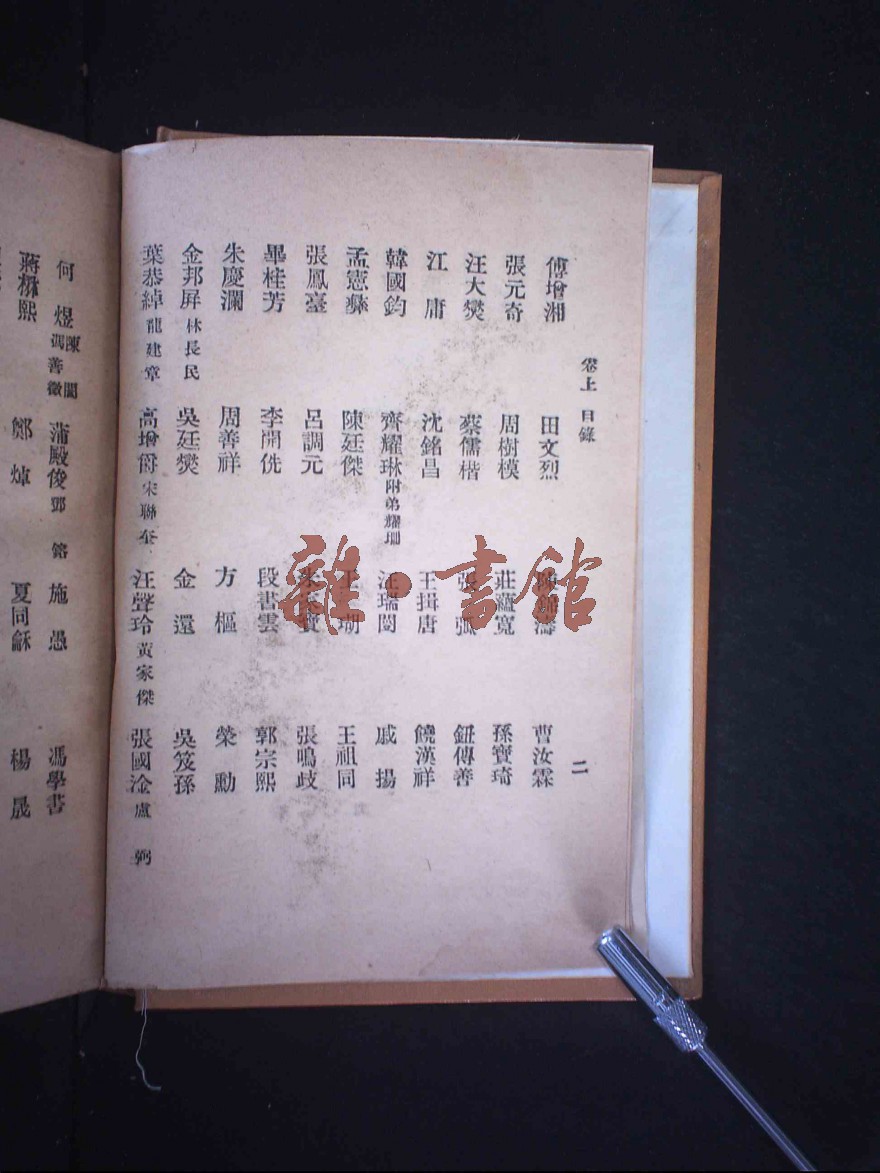 卷上 目錄 二
傅增湘 田文烈 陳 濤 曹汝霖
張元奇 周樹模 莊蘊寬 孫寶琦
汪大燮 蔡儒楷 張弧 鈕傳善
江庸 沈銘昌 王揖唐 饒漢祥
韓國鈞 齊耀琳 附弟耀珊 汪瑞闓 戚揚
孟憲彝 陳廷傑 王瑚 王祖同
張鳳臺 呂調元 寶 張鳴歧
畢桂芳 李開侁 段書雲 郭宗熙
朱慶瀾 周善祥 方樞 榮勳
金邦屏 林長民 吳廷燮 金還 吳笈孫
葉恭綽 龍建章 高增爵 宋聯奎 汪聲玲 黃家傑 張國淦 盧弼
何煜 陳闓 馮善徵 蒲殿俊 鄧鎔 施愚 馮學書
蔣楙熙 鄭焯 夏同龢 楊晟
雜·書館